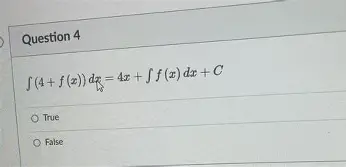 Question 4
∫(4 + f(x)) dx = 4x + ∫ f(x) dx + C
True
False